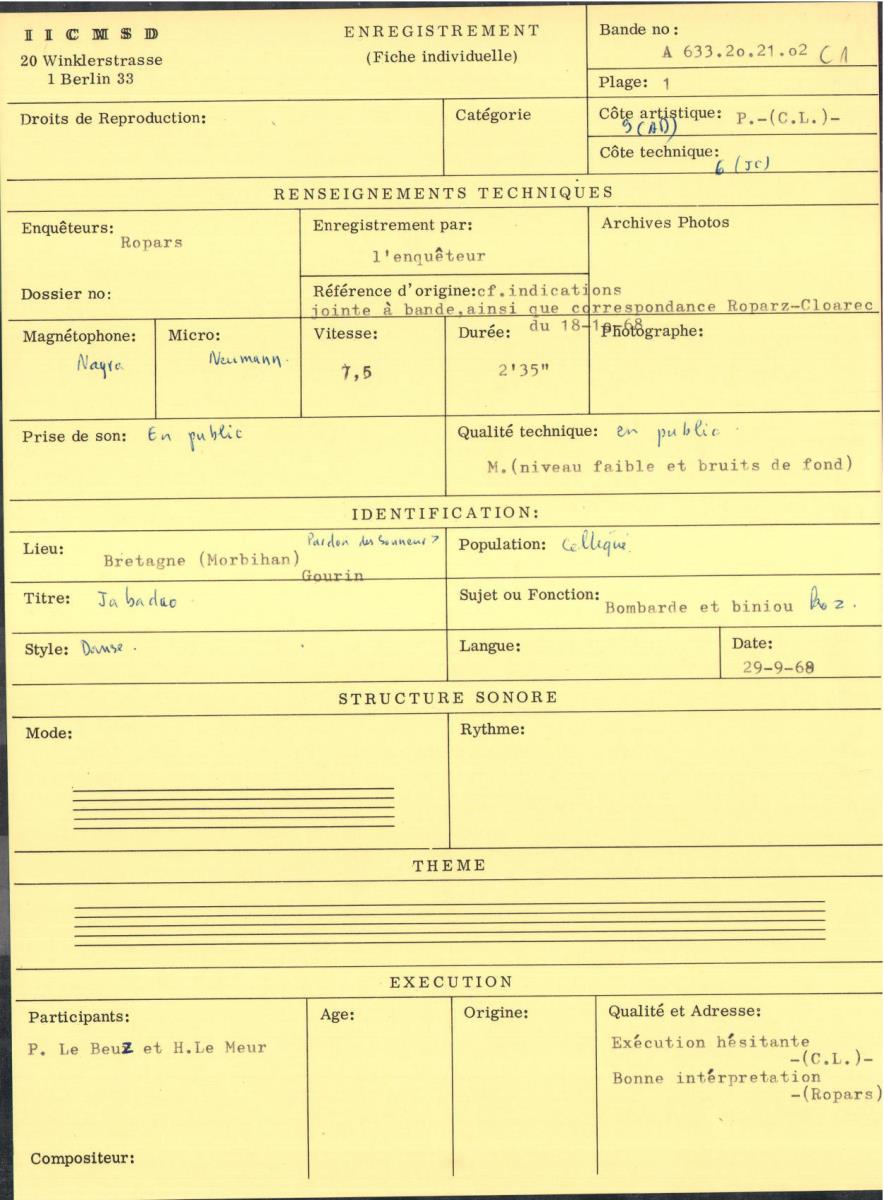 I I C M S D
20 Winklerstrasse
1 Berlin 33
ENREGISTREMENT
(Fiche individuelle)
Bande no :
A 633.2o.21.o2 C1
Plage: 1
Droits de Reproduction:
Catégorie
Côte artistique: P.-(C.L.)-
9 (AD)
Côte technique:
6 (JC)
RENSEIGNEMENTS TECHNIQUES
Enquêteurs:
Ropars
Enregistrement par:
l'enquêteur
Archives Photos
Dossier no:
Référence d'origine:cf.indications
jointe à bande,ainsi que correspondance Roparz-Cloarec
du 18-1o-68
Magnétophone:
Nagra
Micro:
Neumann.
Vitesse:
7,5
Durée:
2'35"
Photographe:
Prise de son: En public
Qualité technique: en public.
M.(niveau faible et bruits de fond)
IDENTIFICATION:
Lieu:
Pardon des Sonneurs
Bretagne (Morbihan)
Gourin
Population: Celtique.
Titre: Jabadao.
Sujet ou Fonction:
Bombarde et biniou Koz.
Style: Danse.
Langue:
Date:
29-9-68
STRUCTURE SONORE
Mode:
Rythme:
THEME
EXECUTION
Participants:
P. Le Beuz et H.Le Meur
Age:
Origine:
Qualité et Adresse:
Exécution hésitante
-(C.L.)-
Bonne intérpretation
-(Ropars)
Compositeur: